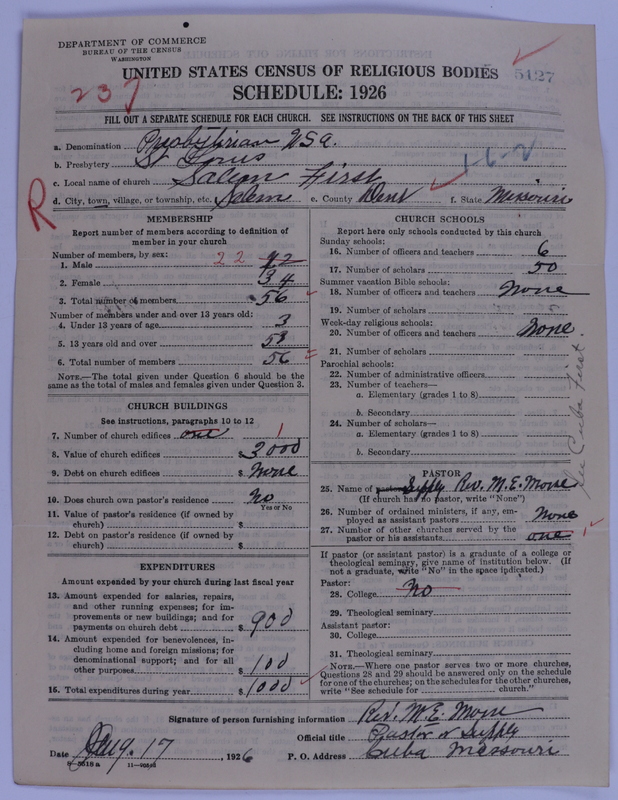 DEPARTMENT OF COMMERCE
BUREAU OF THE CENSUS
WASHINGTON
UNITED STATES CENSUS OF RELIGIOUS BODIES
5427
237
SCHEDULE: 1926
FILL OUT A SEPARATE SCHEDULE FOR EACH CHURCH. SEE INSTRUCTIONS ON THE BACK OF THIS SHEET
a. Denomination Presbyterian USA.
b. Presbytery St Louis
1-6-2
c. Local name of church Salem First
d. City, town, village, or township, etc. Salem e. County Dent f. State Missouri
R
MEMBERSHIP
Report number of members according to definition of
member in your church
Number of members, by sex:
1. Male 22
2. Female 34
3. Total number of members 56
Number of members under and over 13 years old:
4. Under 13 years of age 3
5. 13 years old and over 53
6. Total number of members 56
NOTE.—The total given under Question 6 should be
same as the total of males and females given under Question 3.
CHURCH BUILDINGS
See instructions, paragraphs 10 to 12
7. Number of church edifices one 1
8. Value of church edifices $ 3000
9. Debt on church edifices $ None
10. Does church own pastor's residence No
Yes or No
11. Value of pastor's residence (if owned by
church) $
12. Debt on pastor's residence (if owned by
church) $
EXPENDITURES
Amount expended by your church during last fiscal year
13. Amount expended for salaries, repairs,
and other running expenses; for im-
provements or new buildings; and for
payments on church debt $ 900
14. Amount expended for benevolences, in-
cluding home and foreign missions; for
denominational support; and for all
other purposes $ 100
15. Total expenditures during year $ 1000
CHURCH SCHOOLS
Report here only schools conducted by this church
Sunday schools:
16. Number of officers and teachers 6
17. Number of scholars 50
Summer vacation Bible schools:
18. Number of officers and teachers None
19. Number of scholars
Week-day religious schools:
20. Number of officers and teachers None.
21. Number of scholars
Parochial schools:
22. Number of administrative officers
23. Number of teachers—
a. Elementary (grades 1 to 8)
b. Secondary
24. Number of scholars—
a. Elementary (grades 1 to 8)
b. Secondary
See Cuba First.
PASTOR
25. Name of pastor Supply Rev. M. E. Morse
(If church has no pastor, write "None")
26. Number of ordained ministers, if any, em-
ployed as assistant pastors None
27. Number of other churches served by the
pastor or his assistants one 1
If pastor (or assistant pastor) is a graduate of a college or
theological seminary, give name of institution below. (If
not a graduate, write "No" in the space indicated.)
Pastor:
28. College No
29. Theological seminary
Assistant pastor:
30. College
31. Theological seminary
NOTE.—Where one pastor serves two or more churches,
Questions 28 and 29 should be answered only on the schedule
for one of the churches; on the schedules for the other churches,
write "See schedule for church."
Signature of person furnishing information Rev. M. E. Morse
Official title Pastor or Supply
Date Aug. 17, 1926 P. O. Address Cuba Missouri